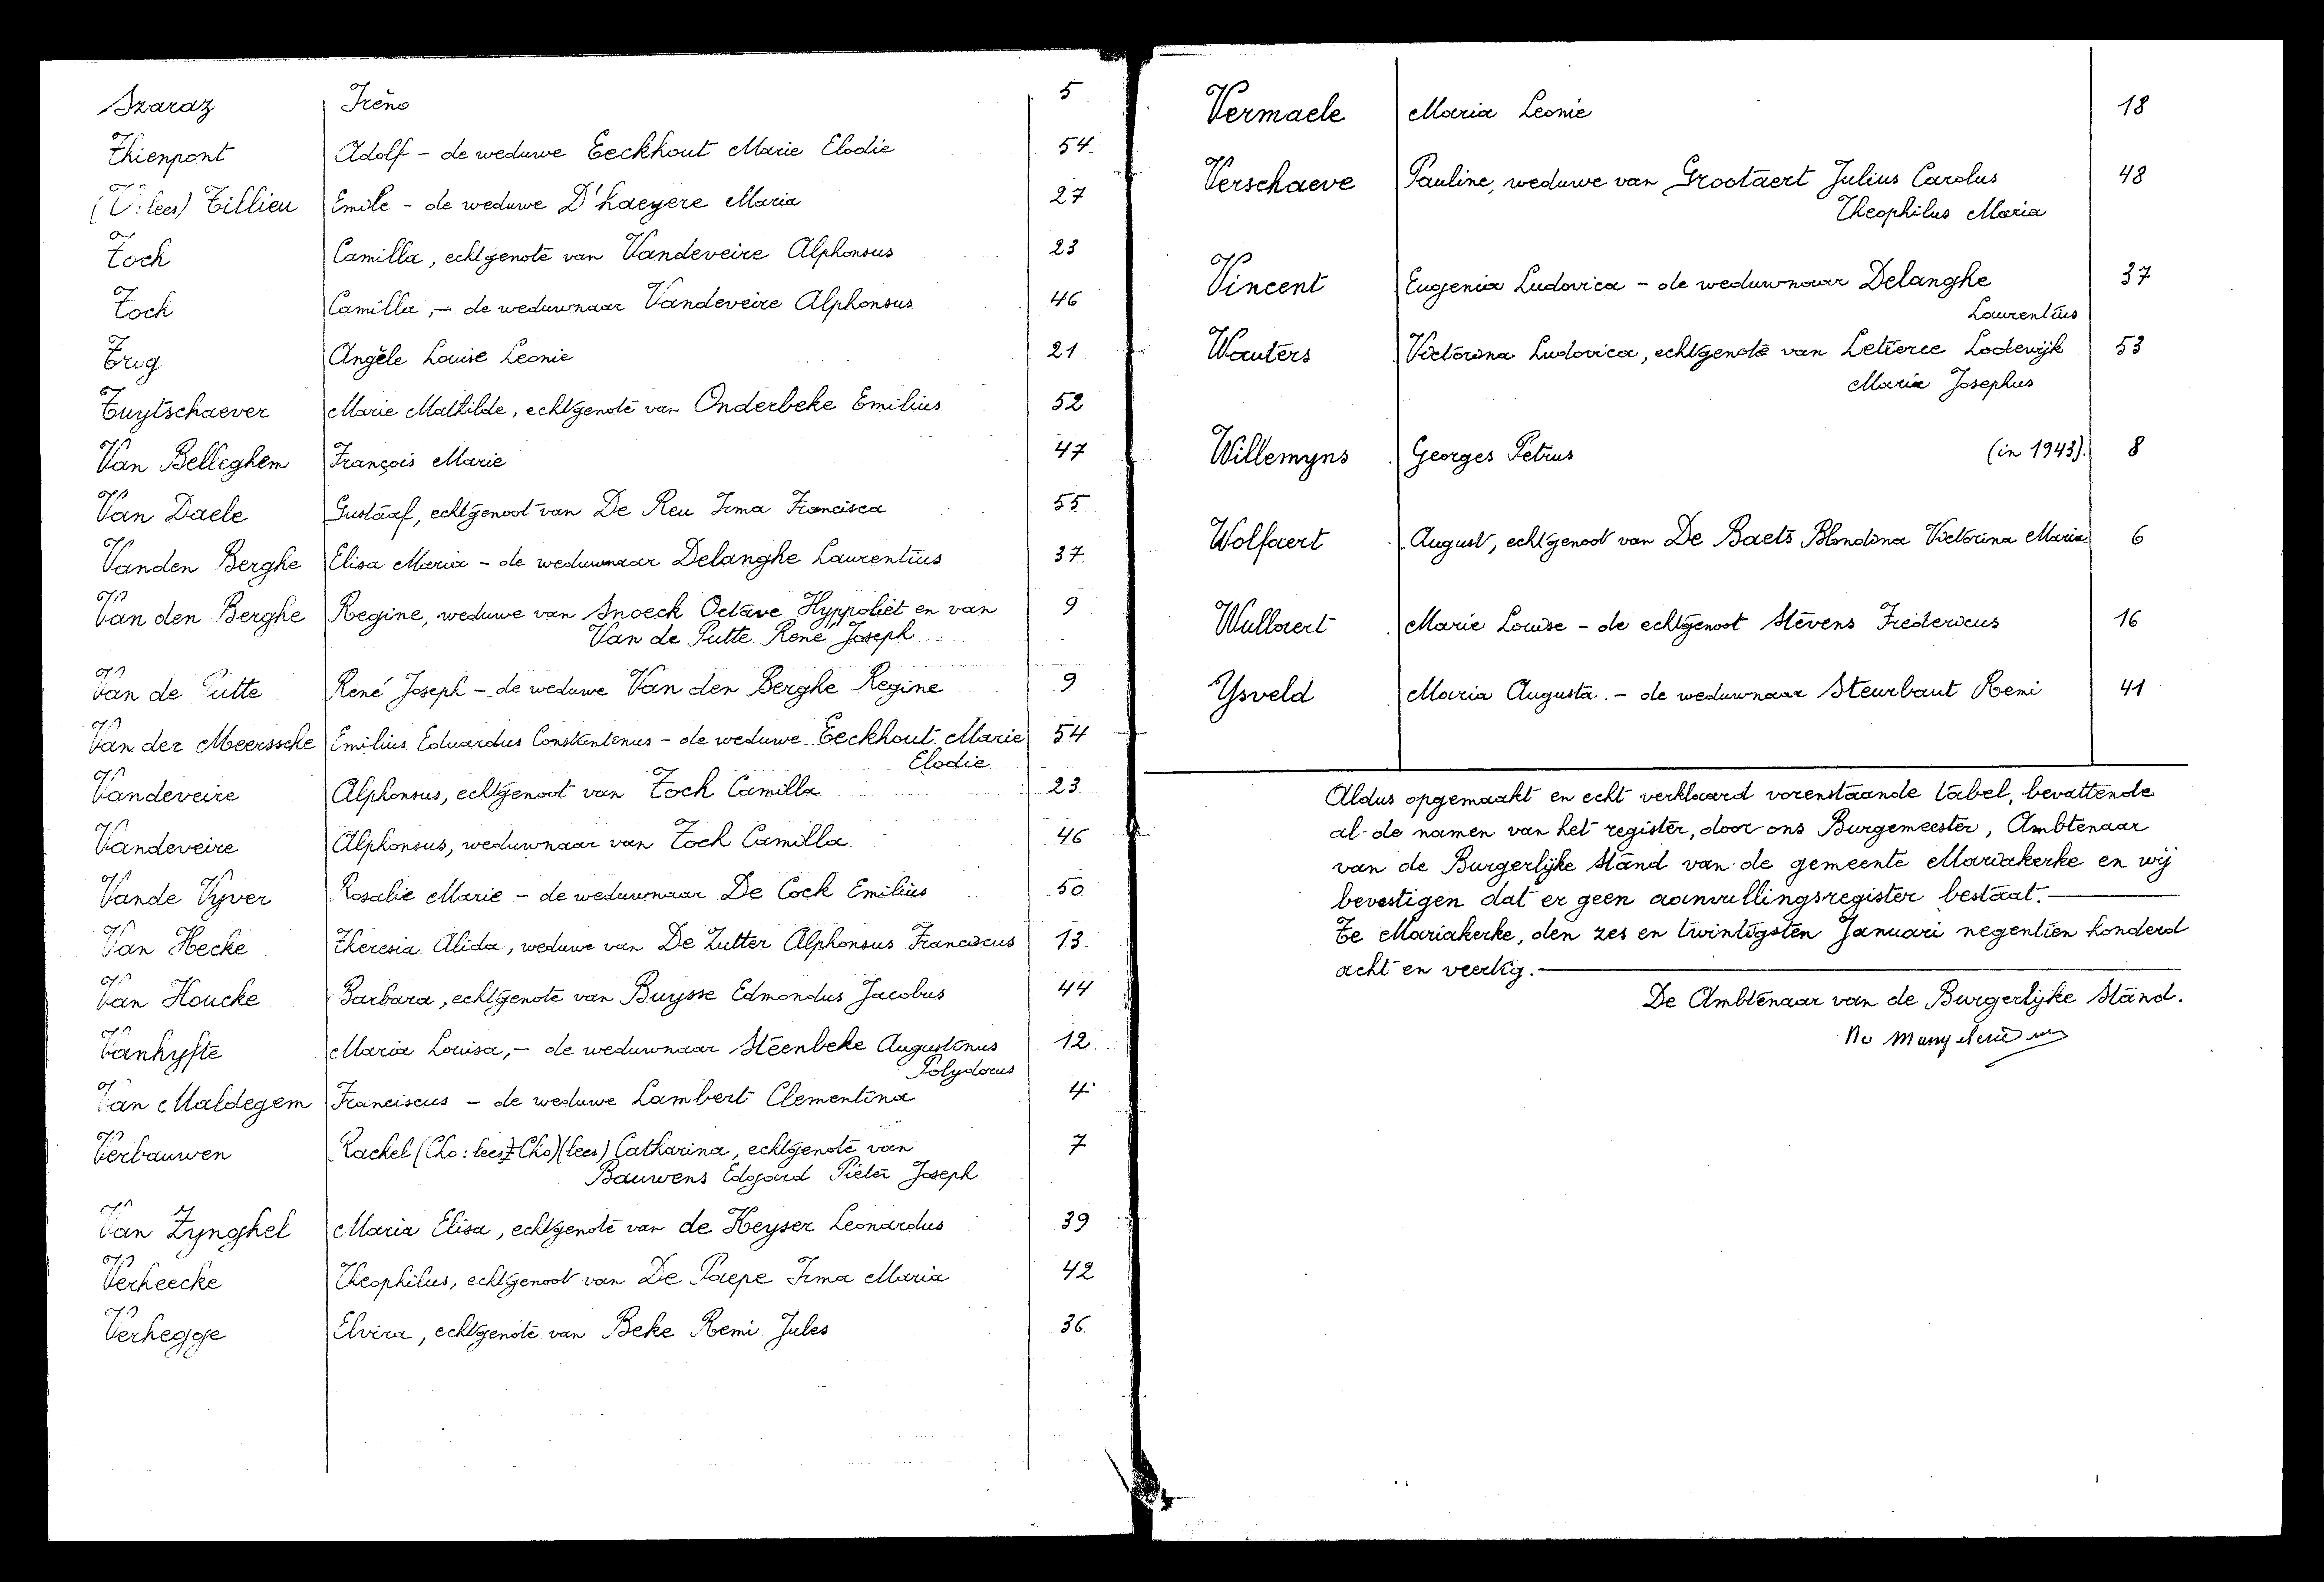 Szaraz Irèno 5
Thienpont Adolf - de weduwe Eeckhout Marie Elodie 54
(V: lees) Tillieu Emile - de weduwe D'haeyere Maria 27
Toch Camilla, echtgenote van Vandeveire Alphonsus 23
Toch Camilla, - de weduwnaar Vandeveire Alphonsus 46
Trig Angèle Louise Leonie 21
Tuytschaever Marie Mathilde, echtgenote van Onderbeke Emilius 52
Van Belleghem François Marie 47
Van Daele Gustaaf, echtgenoot van De Reu Irma Francisca 55
Vanden Berghe Elisa Maria - de weduwnaar Delanghe Laurentius 37
Van den Berghe Regine, weduwe van Snoeck Octave Hyppoliet en van 9
Van de Putte René Joseph
Van de Putte René Joseph - de weduwe Van den Berghe Regine 9
Van der Meerssche Emilius Eduardus Constantenus - de weduwe Eeckhout Marie 54
Elodie
Vandeveire Alphonsus, echtgenoot van Toch Camilla 23
Vandeveire Alphonsus, weduwnaar van Toch Camilla 46
Vande Vyver Rosalie Marie - de weduwnaar De Cock Emilius 50
Van Hecke Theresia Alida, weduwe van De Zutter Alphonsus Franciscus 13
Van Houcke Barbara, echtgenote van Buysse Edmondus Jacobus 44
Vanhyfte Maria Louisa, - de weduwnaar Steenbeke Augustinus 12
Polydorus
Van Maldegem Franciscus - de weduwe Lambert Clementina 4
Verbauwen Rachel (Cho: lees Cho) (lees) Catharina, echtgenote van 7
Bauwens Edgard Pieter Joseph
Van Zynghel Maria Elisa, echtgenote van de Keyser Leonardus 39
Verheecke Theophilus, echtgenoot van De Paepe Irma Maria 42
Verhegge Elvira, echtgenote van Beke Remi Jules 36
Vermaele Maria Leonie 18
Verschaeve Pauline, weduwe van Grootaert Julius Carolus 48
Theophilus Maria
Vincent Eugenia Ludovica - de weduwnaar Delanghe 37
Laurentius
Wauters Victorina Ludovica, echtgenote van Letierce Lodewijk 53
Maria Josephus
Willemyns Georges Petrus (in 1943). 8
Wolfaert August, echtgenoot van De Baets Blondina Victorina Maria 6
Wullaert Marie Louise - de echtgenoot Stevens Fredericus 16
Ysveld Maria Augusta. - de weduwnaar Steurbaut Remi 41
Aldus opgemaakt en echt verklaard vorenstaande tabel, bevattende
al de namen van het register, door ons Burgemeester, Ambtenaar
van de Burgerlijke Stand van de gemeente Mariakerke en wij
bevestigen dat er geen aanvullingsregister bestaat.
Te Mariakerke, den zes en twintigsten Januari negentien honderd
acht en veertig.
De Ambtenaar van de Burgerlijke Stand.